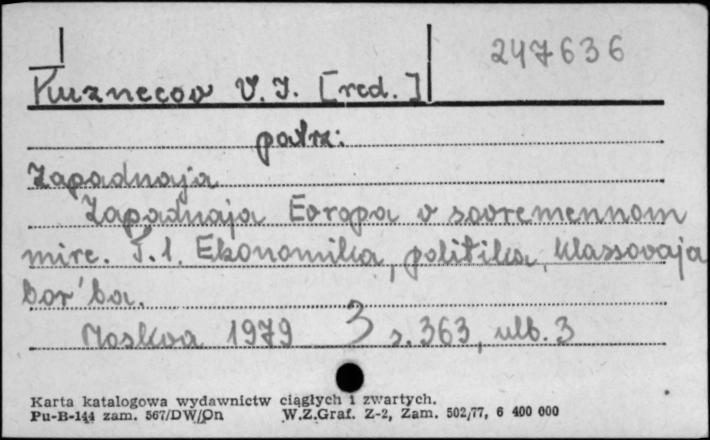 247636
Kuznecov V.I. [red.]
patrz:
Zapadnaja
Zapadnaja Evropa v sovremennom
mire. T.1. Ekonomika, politika, klassovaja
bor'ba.
Moskva 1979 3 s. 363, ulb. 3
Karta katalogowa wydawnictw ciągłych i zwartych.
Pu-B-144 zam. 567/DW/Dn W.Z.Graf. Z-2, Zam. 502/77, 6 400 000